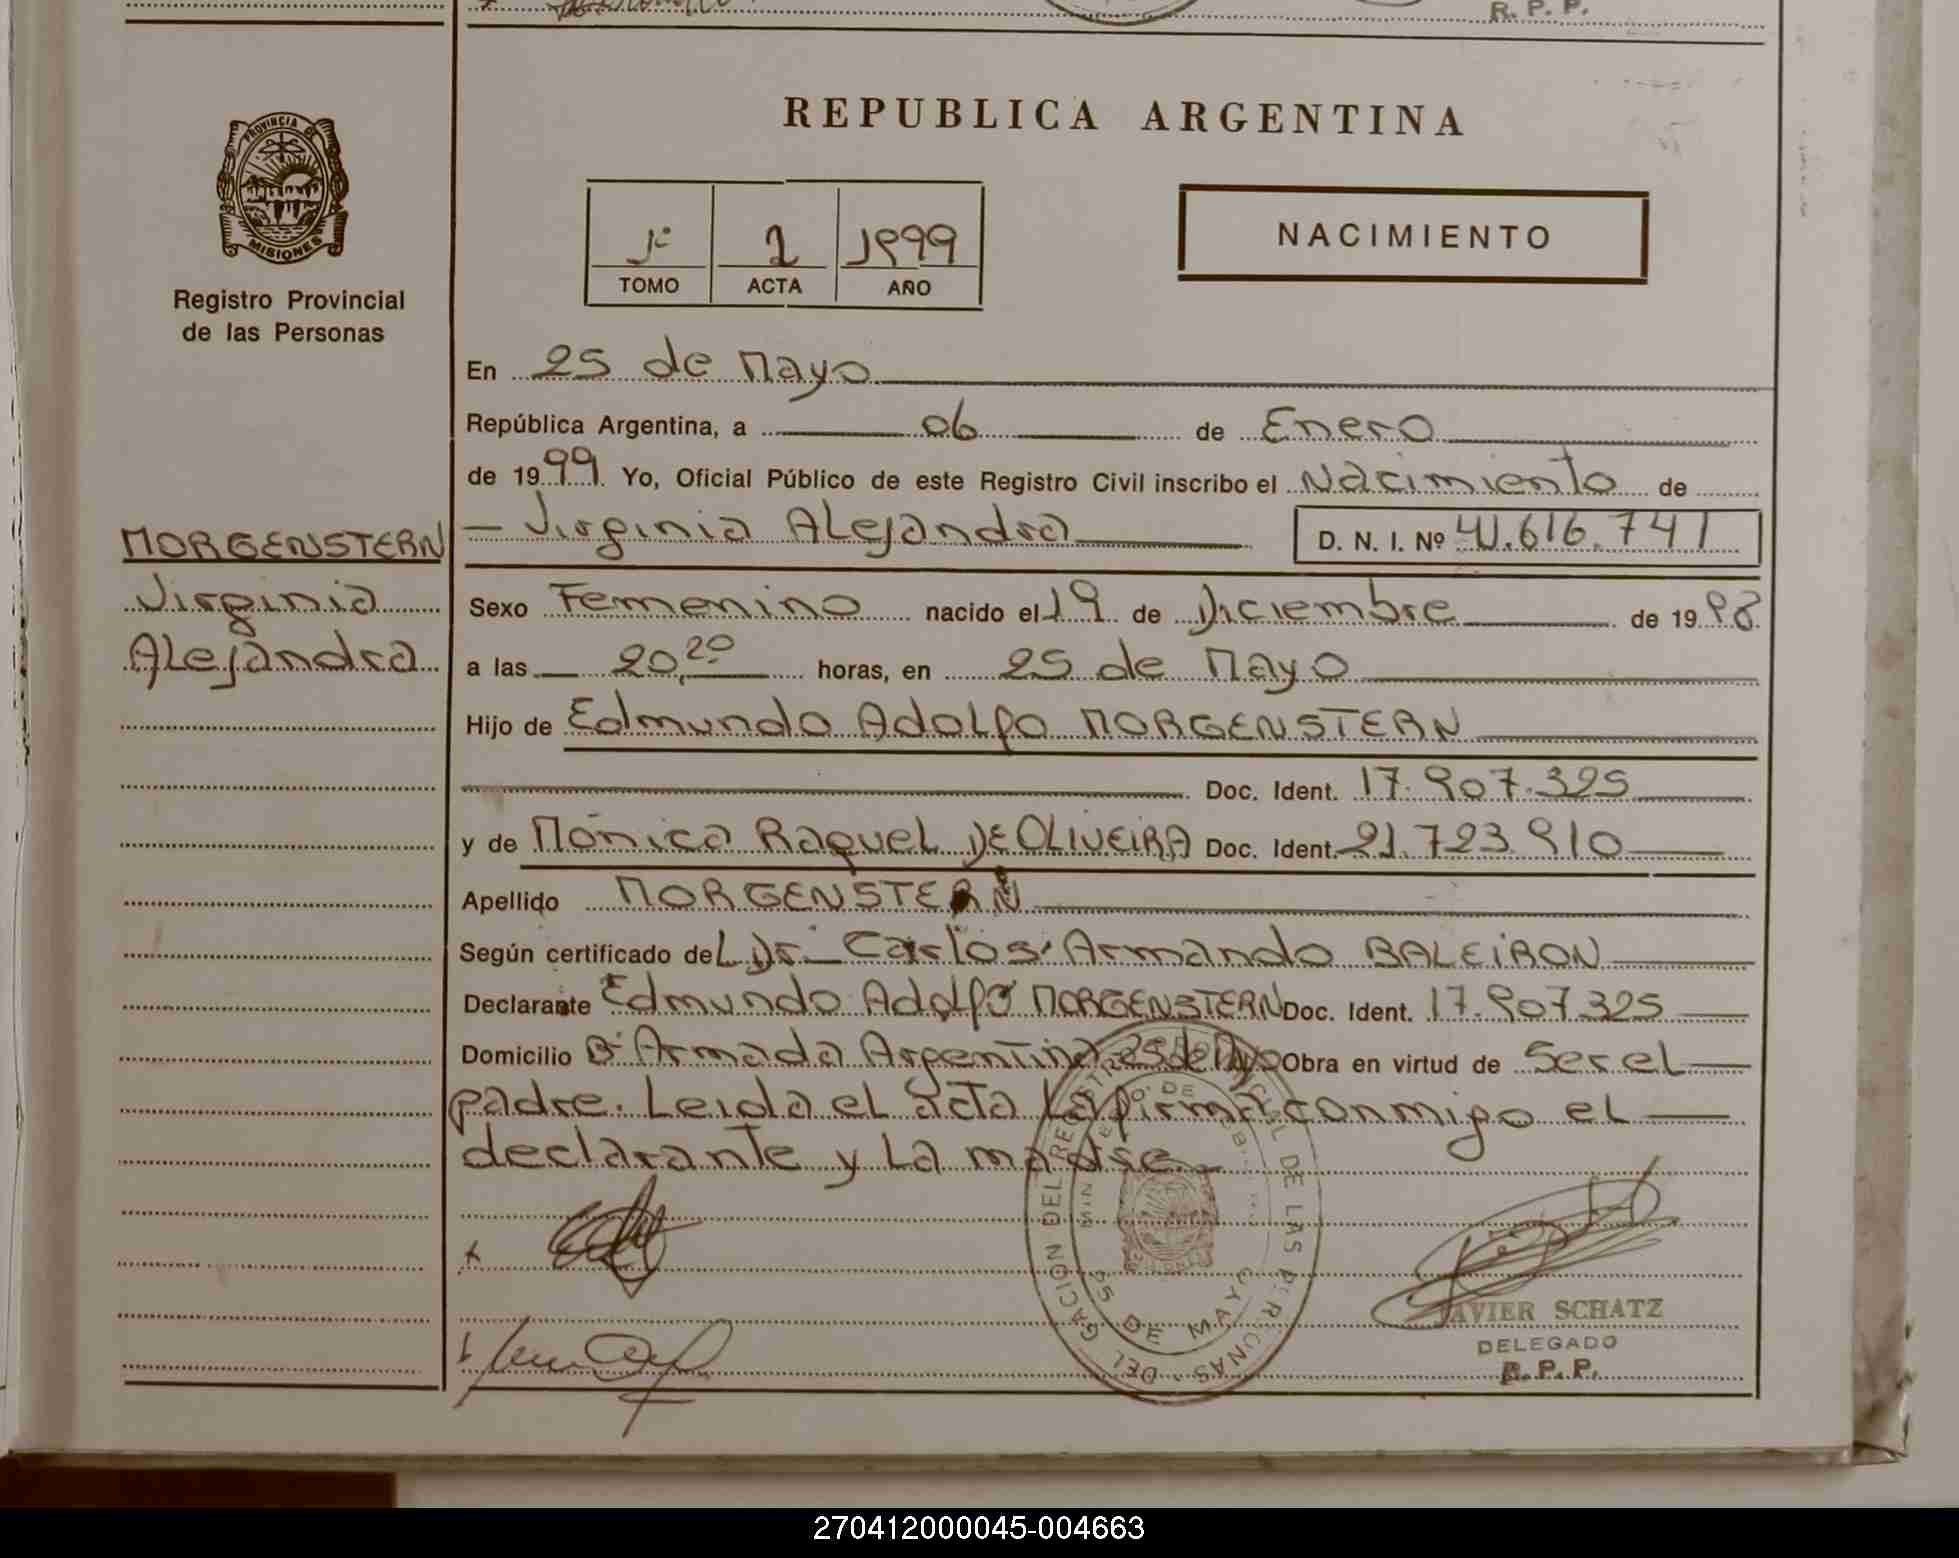 R. P. P.
REPUBLICA ARGENTINA
PROVINCIA DE
MISIONES
Registro Provincial
de las Personas
1º 2 1999
TOMO ACTA AÑO
NACIMIENTO
En 25 de Mayo
República Argentina, a 06 de Enero
de 1999 Yo, Oficial Público de este Registro Civil inscribo el Nacimiento de
MORGENSTERN
Virginia
Alejandra
— Virginia Alejandra D. N. I. Nº 41.616.741
Sexo Femenino nacido el 19 de Diciembre de 1998
a las 20,20 horas, en 25 de Mayo
Hijo de Edmundo Adolfo MORGENSTERN
Doc. Ident. 17.907.325
y de Mónica Raquel DE OLIVEIRA Doc. Ident. 21.723.910
Apellido MORGENSTERN
Según certificado del Dr. Carlos Armando BALEIRON
Declarante Edmundo Adolfo MORGENSTERN Doc. Ident. 17.907.325
Domicilio Bº Armada Argentina 25 de Myo Obra en virtud de Ser el
padre. Leida el acta la firma conmigo el
declarante y La madre.
DE LAS
25 DE MAYO
AVIER SCHATZ
DELEGADO
R. P. P.
270412000045-004663